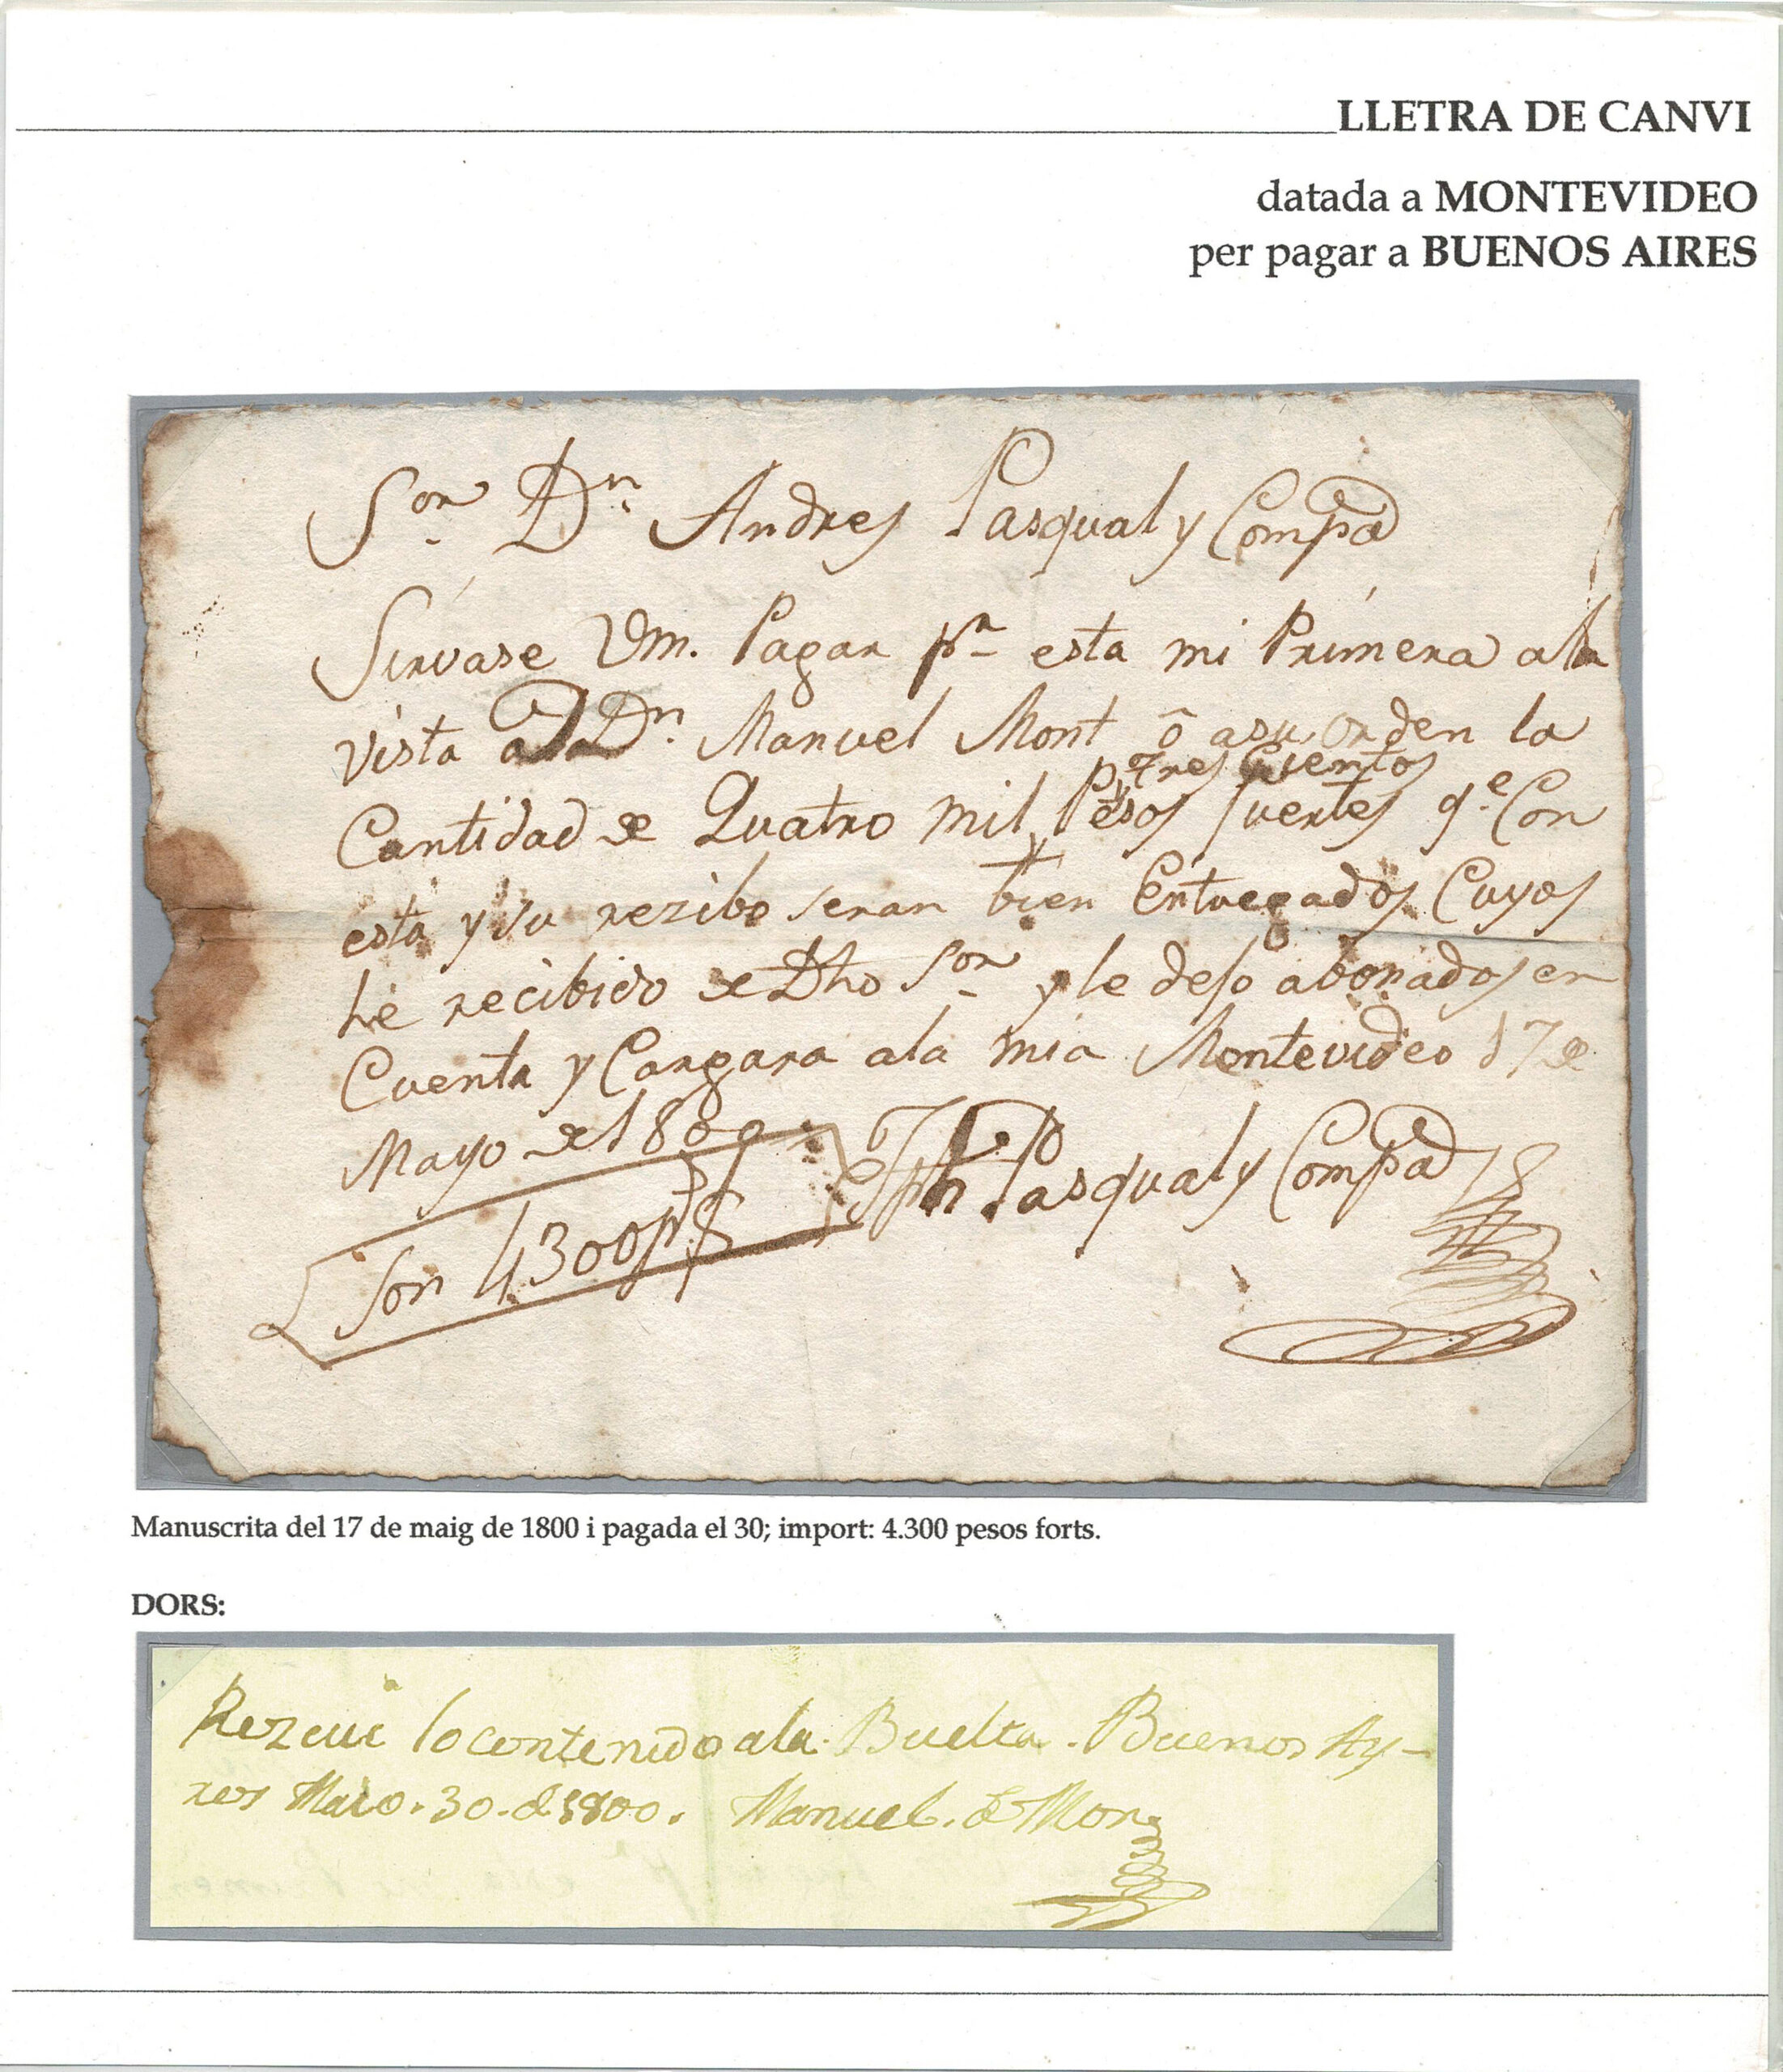 LLETRA DE CANVI
datada a MONTEVIDEO
per pagar a BUENOS AIRES
Sor. Dn. Andres Pasqual y Compa
Sirvase Vm. Pagar pr esta mi Primera ala
vista a Dn. Manuel Mont ô asu orden la
trescientos
Cantidad de Quatro mil Pesos fuertes q.e Con
esta y su rezibo seran bien Entregados Cuyos
hé recibido de Dho Sor y le dejo abonados en
Cuenta y Cargara ala mia Montevideo 17 de
Mayo de 1800
Jph Pasqual y Compa
Son 4300 ps fs
Manuscrita del 17 de maig de 1800 i pagada el 30; import: 4.300 pesos forts.
DORS:
Rezevi lo contenido ala Buelta. Buenos Ay-
res Maio. 30. de 1800. Manuel. de Mon